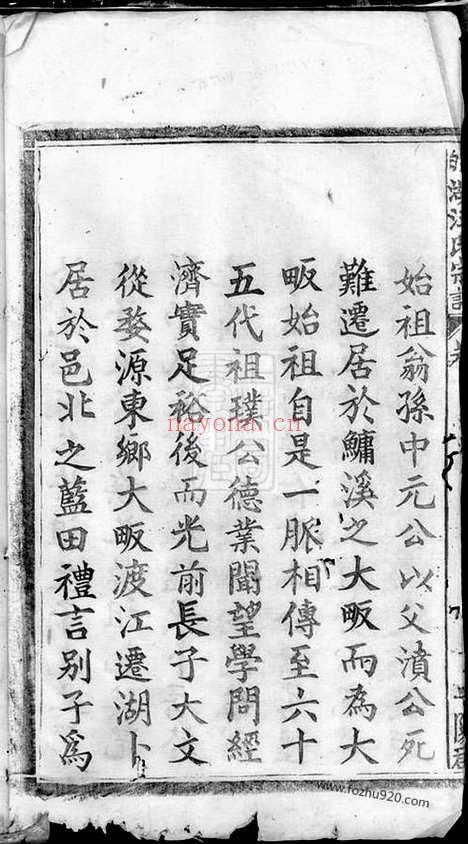 始祖翁孫中元公以父濆公死
難遷居於鱅溪之大畈而為大
畈始祖自是一脈相傳至六十
五代祖璞公德業聞望學問經
濟實足裕後而光前長子大文
從婺源東鄉大畈渡江遷湖卜
居於邑北之藍田禮言别子為
nayona.cn
www.fozhu920.com